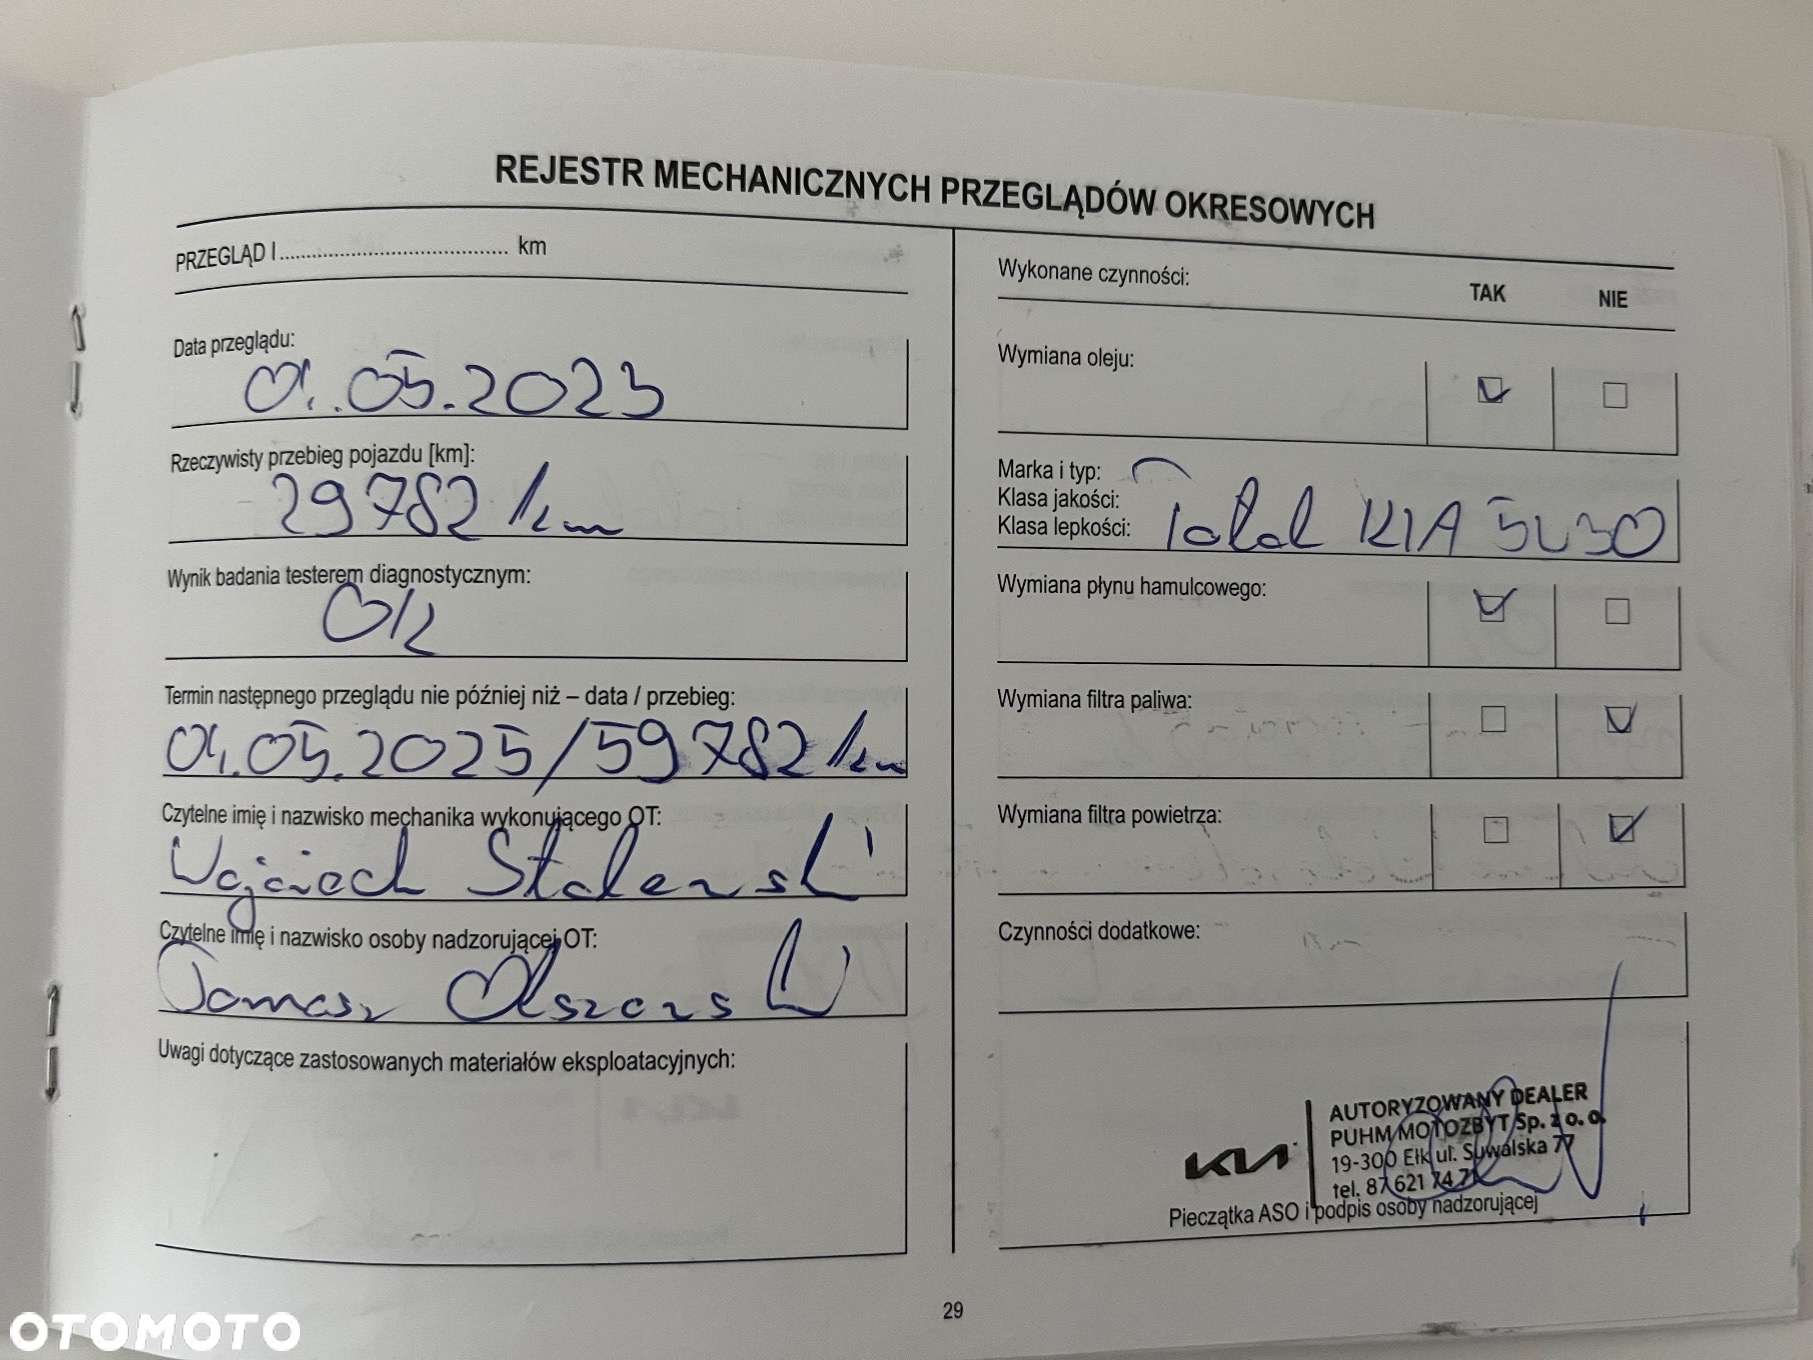 REJESTR MECHANICZNYCH PRZEGLĄDÓW OKRESOWYCH
PRZEGLĄD I........................................ km
Data przeglądu:
04.05.2023
Rzeczywisty przebieg pojazdu [km]:
29782 km
Wynik badania testerem diagnostycznym:
OK
Termin następnego przeglądu nie później niż – data / przebieg:
04.05.2025/59782 km
Czytelne imię i nazwisko mechanika wykonującego OT:
Wojciech
Czytelne imię i nazwisko osoby nadzorującej OT:
Tomasz
Uwagi dotyczące zastosowanych materiałów eksploatacyjnych:
Wykonane czynności:
TAK NIE
Wymiana oleju:
Marka i typ:
Klasa jakości:
Klasa lepkości: Total KIA 5W30
Wymiana płynu hamulcowego:
Wymiana filtra paliwa:
Wymiana filtra powietrza:
Czynności dodatkowe:
KIA
AUTORYZOWANY DEALER
PUHM MOTOZBYT Sp. z o. o.
19-300 Ełk ul. Suwalska 77
tel. 87 621 74 71
Pieczątka ASO i podpis osoby nadzorującej
29
OTOMOTO